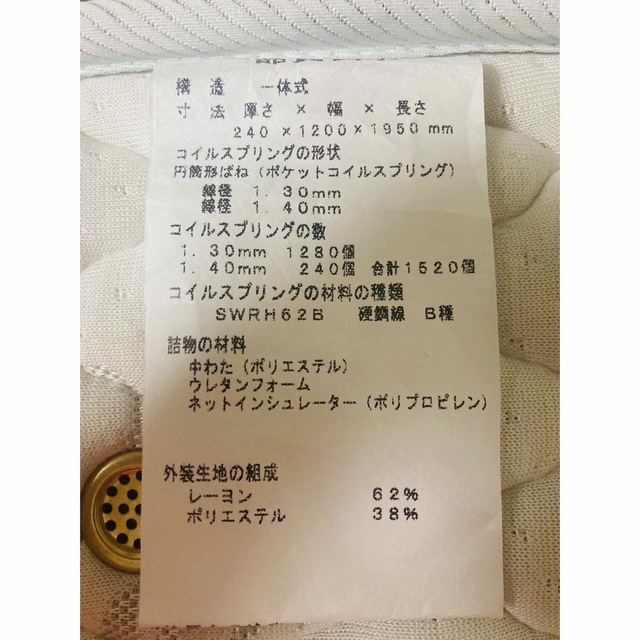 構 造 一体式
寸 法 厚さ × 幅 × 長さ
240×1200×1950mm
コイルスプリングの形状
円筒形ばね（ポケットコイルスプリング）
線径 1.30mm
線径 1.40mm
コイルスプリングの数
1.30mm 1280個
1.40mm 240個 合計1520個
コイルスプリングの材料の種類
SWRH62B 硬鋼線 B種
詰物の材料
中わた（ポリエステル）
ウレタンフォーム
ネットインシュレーター（ポリプロピレン）
外装生地の組成
レーヨン 62%
ポリエステル 38%